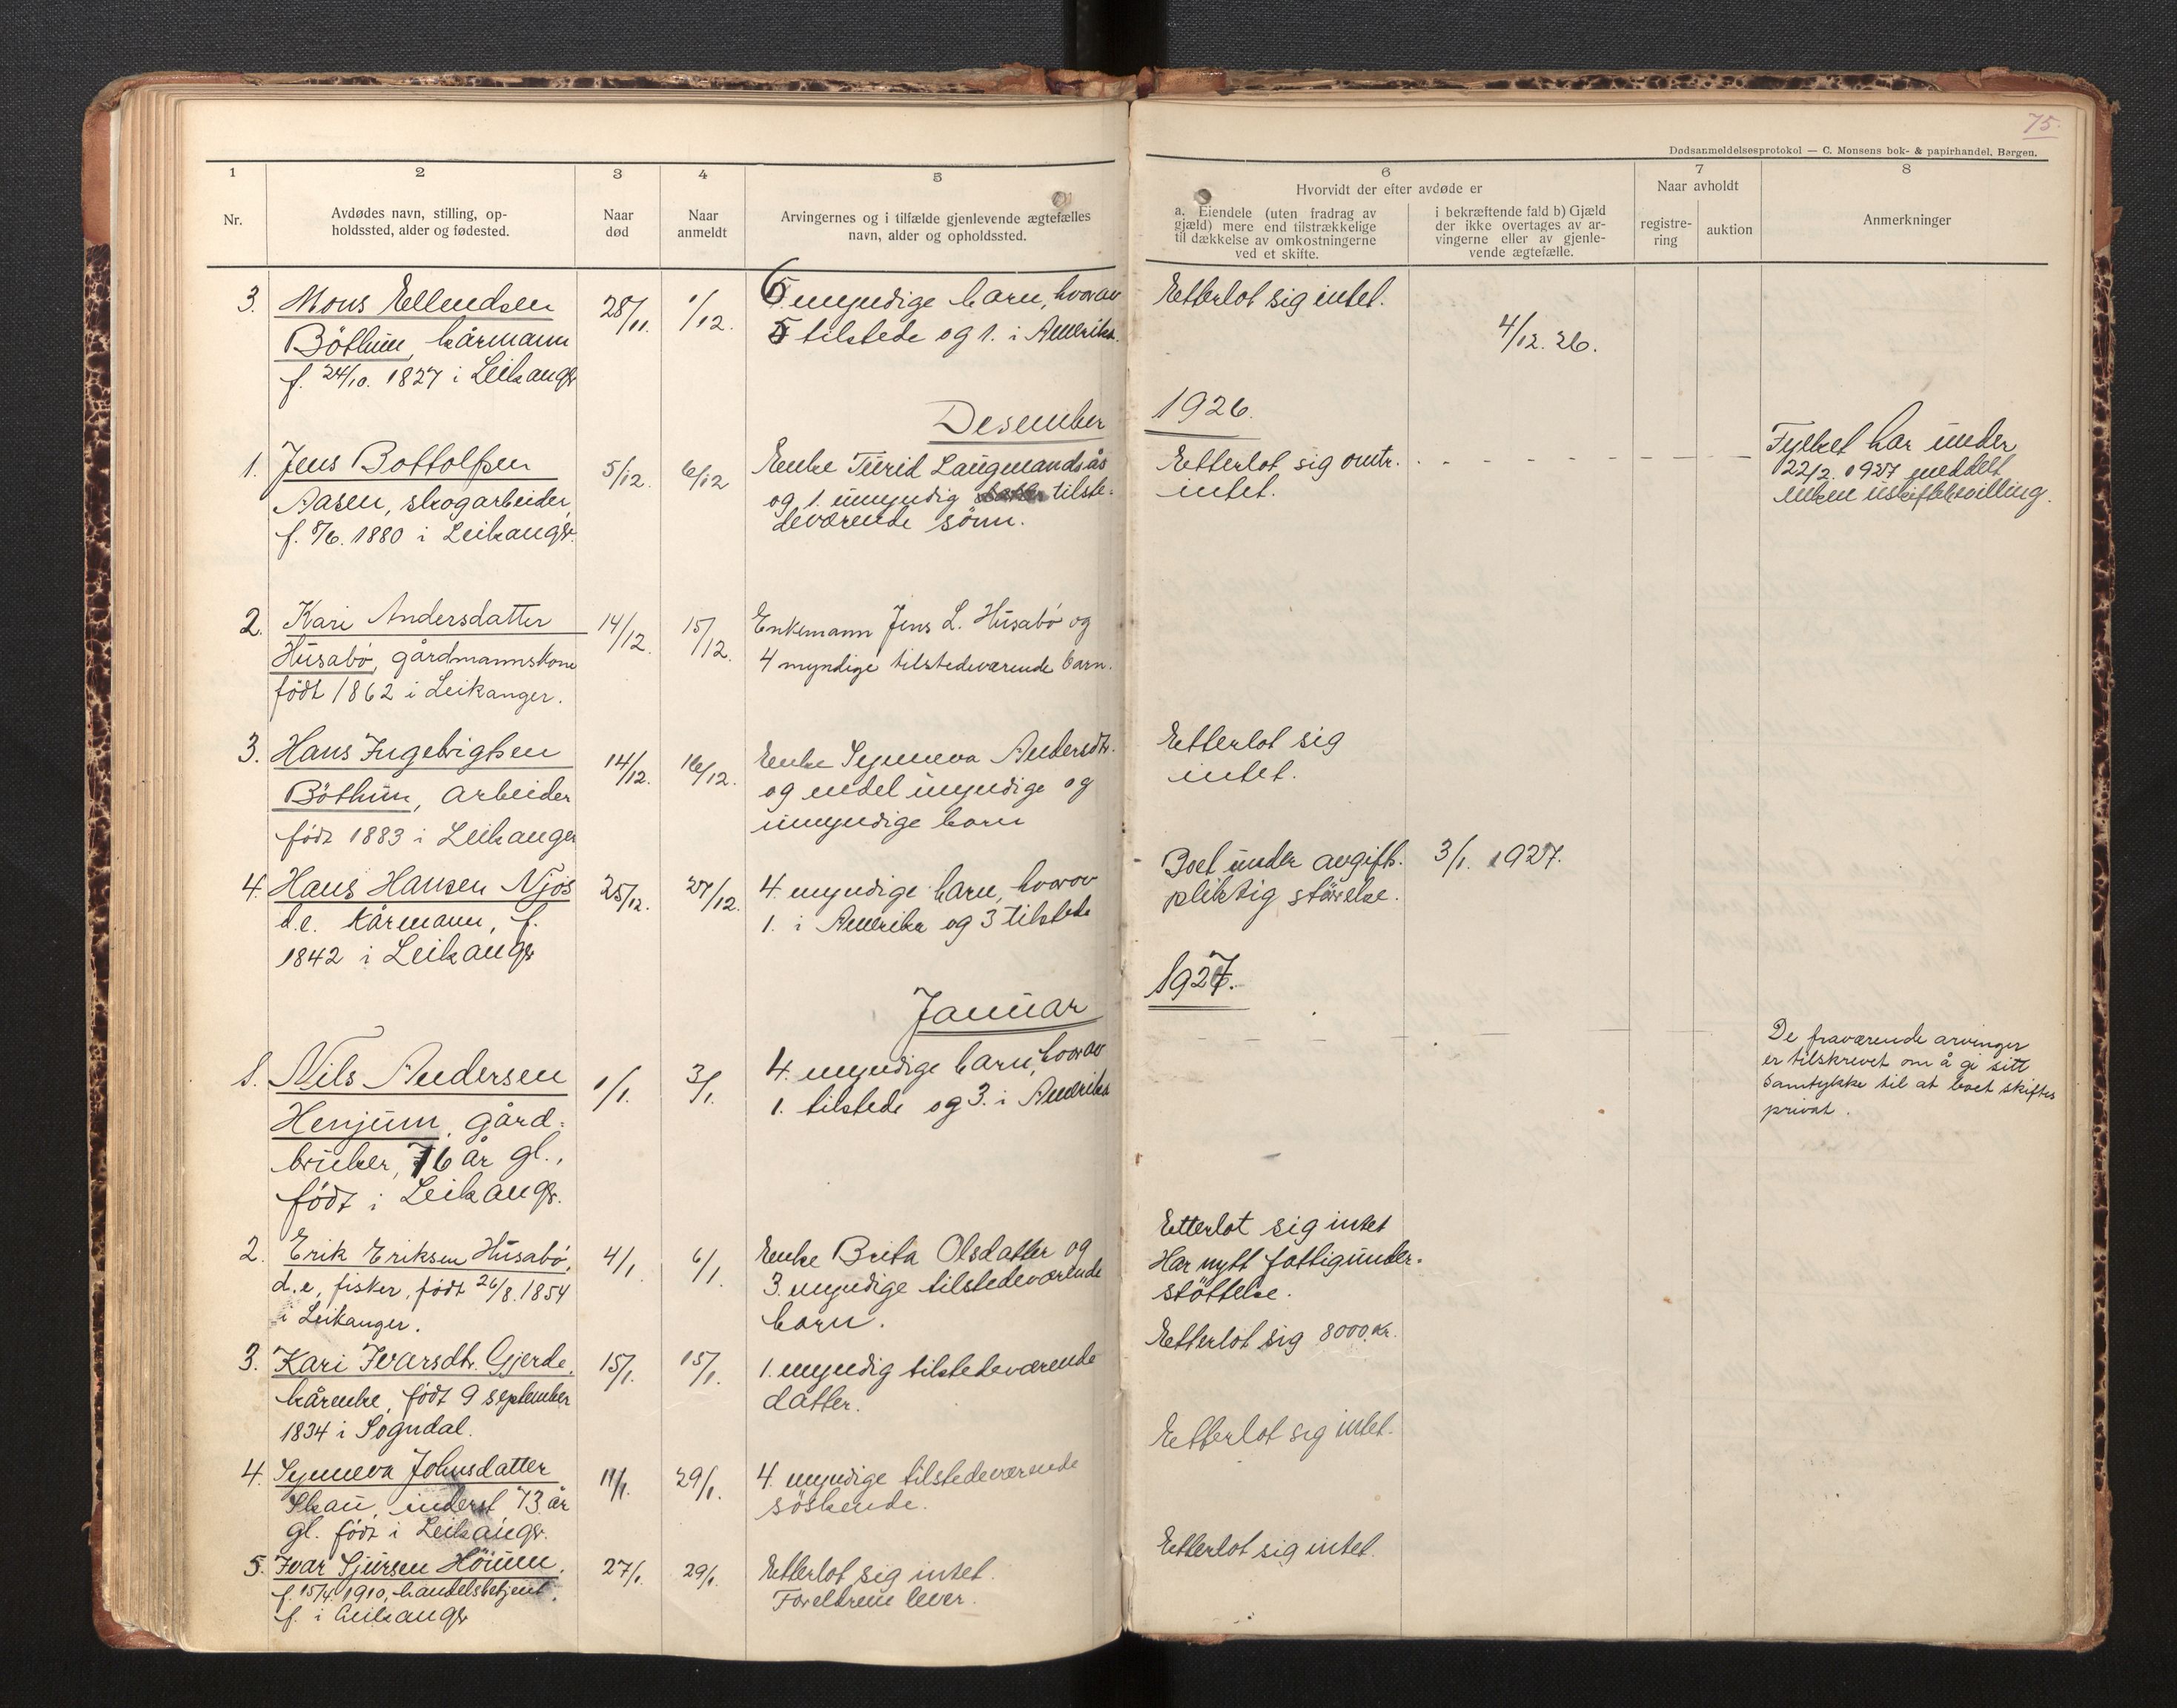 75.
Dødsanmeldelsesprotokol — C. Monsens bok- & papirhandel, Bergen.
1
Nr.
2
Avdødes navn, stilling, op-
holdssted, alder og fødested.
3
Naar
død
4
Naar
anmeldt
5
Arvingernes og i tilfælde gjenlevende ægtefælles
navn, alder og opholdssted.
6
Hvorvidt der efter avdøde er
a. Eiendele (uten fradrag av
gjæld) mere end tilstrækkelige
til dækkelse av omkostningerne
ved et skifte.
i bekræftende fald b) Gjæld
der ikke overtages av ar-
vingerne eller av gjenle-
vende ægtefælle.
7
Naar avholdt
registre-
ring
auktion
8
Anmerkninger
3. Mons Ellendsen
Böthun, kårmann
f. 24/10. 1827 i Leikangr
28/11.
1/12.
6 myndige barn, hvorav
5 tilstede og 1. i Amerika.
Etterlot sig intet.
4/12. 26.
Desember 1926.
1. Jens Bottolfsen
Aasen, skogarbeider,
f. 8/6. 1880 i Leikangr.
5/12.
6/12
Enke Turid Laugmandsås
og 1. umyndig tilste-
deværende sönn.
Etterlot sig omtr.
intet.
Fylket har under
22/2. 1927 meddelt
enken uskiftebevilling.
2. Kari Andersdatter
Husabö, gårdmannskone
födt 1862 i Leikanger.
14/12.
15/12.
Enkemann Jens L. Husabö og
4 myndige tilstedeværende barn.
3. Hans Ingebrigtsen
Böthun, arbeider
födt 1883 i Leikanger
14/12.
16/12.
Enke Synneva Andersdtr.
og endel myndige og
umyndige barn
Etterlot sig
intet.
4. Hans Hansen Njös
d.e. kårmann, f.
1842 i Leikangr
25/12.
27/12.
4 myndige barn, hvorav
1. i Amerika og 3 tilstede
Boet under avgifts-
pliktig störrelse.
3/1. 1927.
Januar 1927.
1. Nils Andersen
Henjum, gård-
bruker, 76 år gl.,
födt i Leikangr.
1/1.
3/1.
4. myndige barn, hvorav
1. tilstede og 3. i Amerika
De fraværende arvinger
er tilskrevet om å gi sitt
samtykke til at boet skiftes
privat.
2. Erik Eriksen Husabö,
d.e, fisker, födt 26/8. 1854
i Leikanger.
4/1.
6/1.
Enke Brita Olsdatter og
3. myndige tilstedeværende
barn.
Etterlot sig intet
Har nytt fattigunder-
stöttelse.
3. Kari Ivarsdtr. Gjerde,
kårenke, födt 9 september
1834 i Sogndal.
15/1.
15/1.
1. myndig tilstedeværende
datter.
Etterlot sig 8000 kr.
4. Synneva Johnsdatter
Skau, inderst 73 år
gl. födt i Leikangr.
11/1.
29/1.
4. myndige tilstedeværende
söskende.
Etterlot sig intet.
5. Ivar Sjursen Hörum.
f. 15/4. 1910, handelsbetjent,
f. i Leikangr
27/1.
29/1.
Etterlot sig intet.
Foreldrene lever.
Etterlot sig intet.